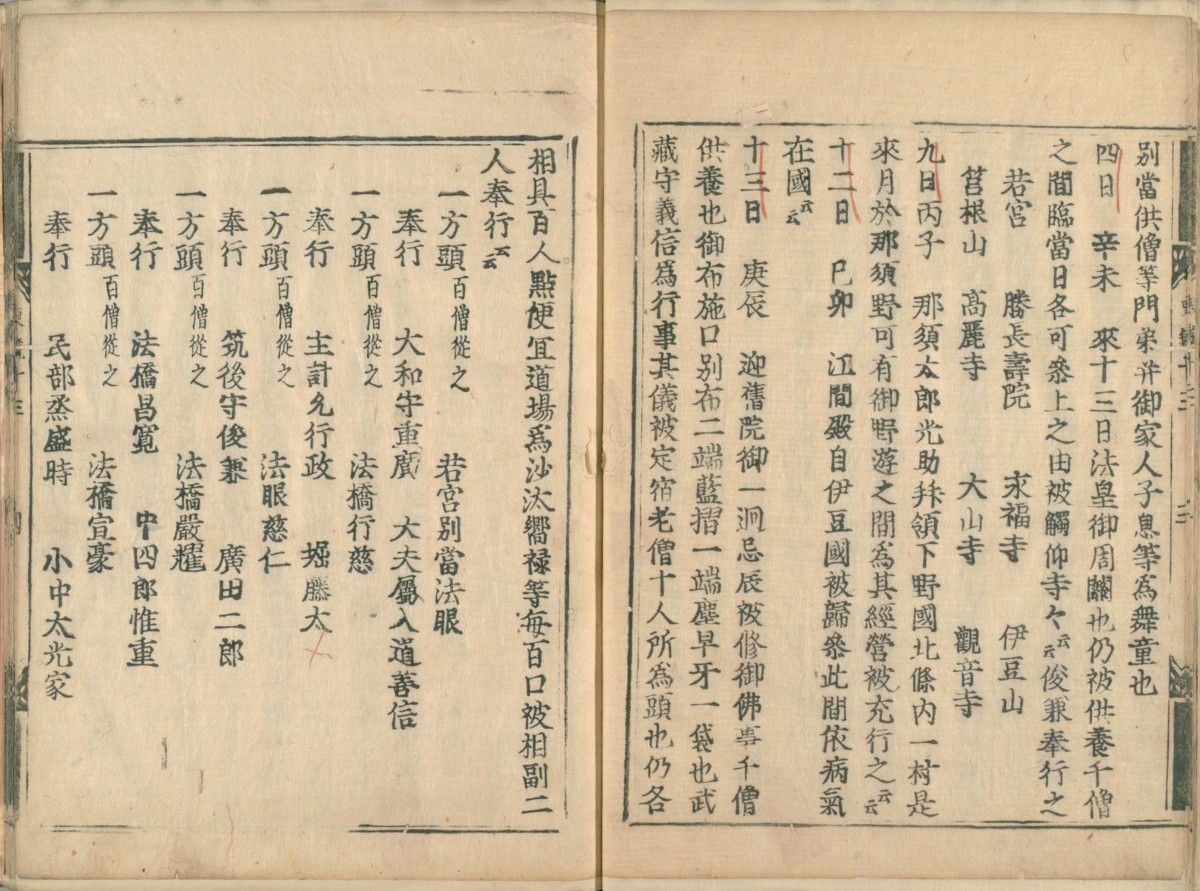 別當供僧等門弟并御家人子息等爲舞童也
四日　辛未　來十三日法皇御周闋也仍被供養千僧
之間臨當日各可參上之由被觸仰寺々云云俊兼奉行之
若宮　勝長壽院　永福寺　伊豆山
筥根山　高麗寺　大山寺　觀音寺
九日丙子　那須太郎光助拝領下野國北條内一村是
來月於那須野可有御野遊之間爲其經營被充行之云云
十二日　己卯　江間殿自伊豆國被歸參此間依病氣
在國云云
十三日　庚辰　迎舊院御一𢌞忌辰被修御佛事千僧
供養也御布施口別布二端藍摺一端塵早牙一袋也武
藏守義信爲行事其儀被定宿老僧十人所爲頭也仍各
相具百人點便冝道場爲沙汰嚮禄等每百口被相副二
人奉行云云
一方頭百僧從之　若宮別當法眼
奉行　大和守重廣　大夫屬入道善信
一方頭百僧從之　法橋行慈
奉行　主計允行政　堀藤太
一方頭百僧從之　法眼慈仁
奉行　筑後守俊兼　廣田二郎
一方頭百僧從之　法橋嚴耀
奉行　法橋昌寬　中四郎惟重
一方頭百僧從之　法橋宣豪
奉行　民部丞盛時　小中太光家